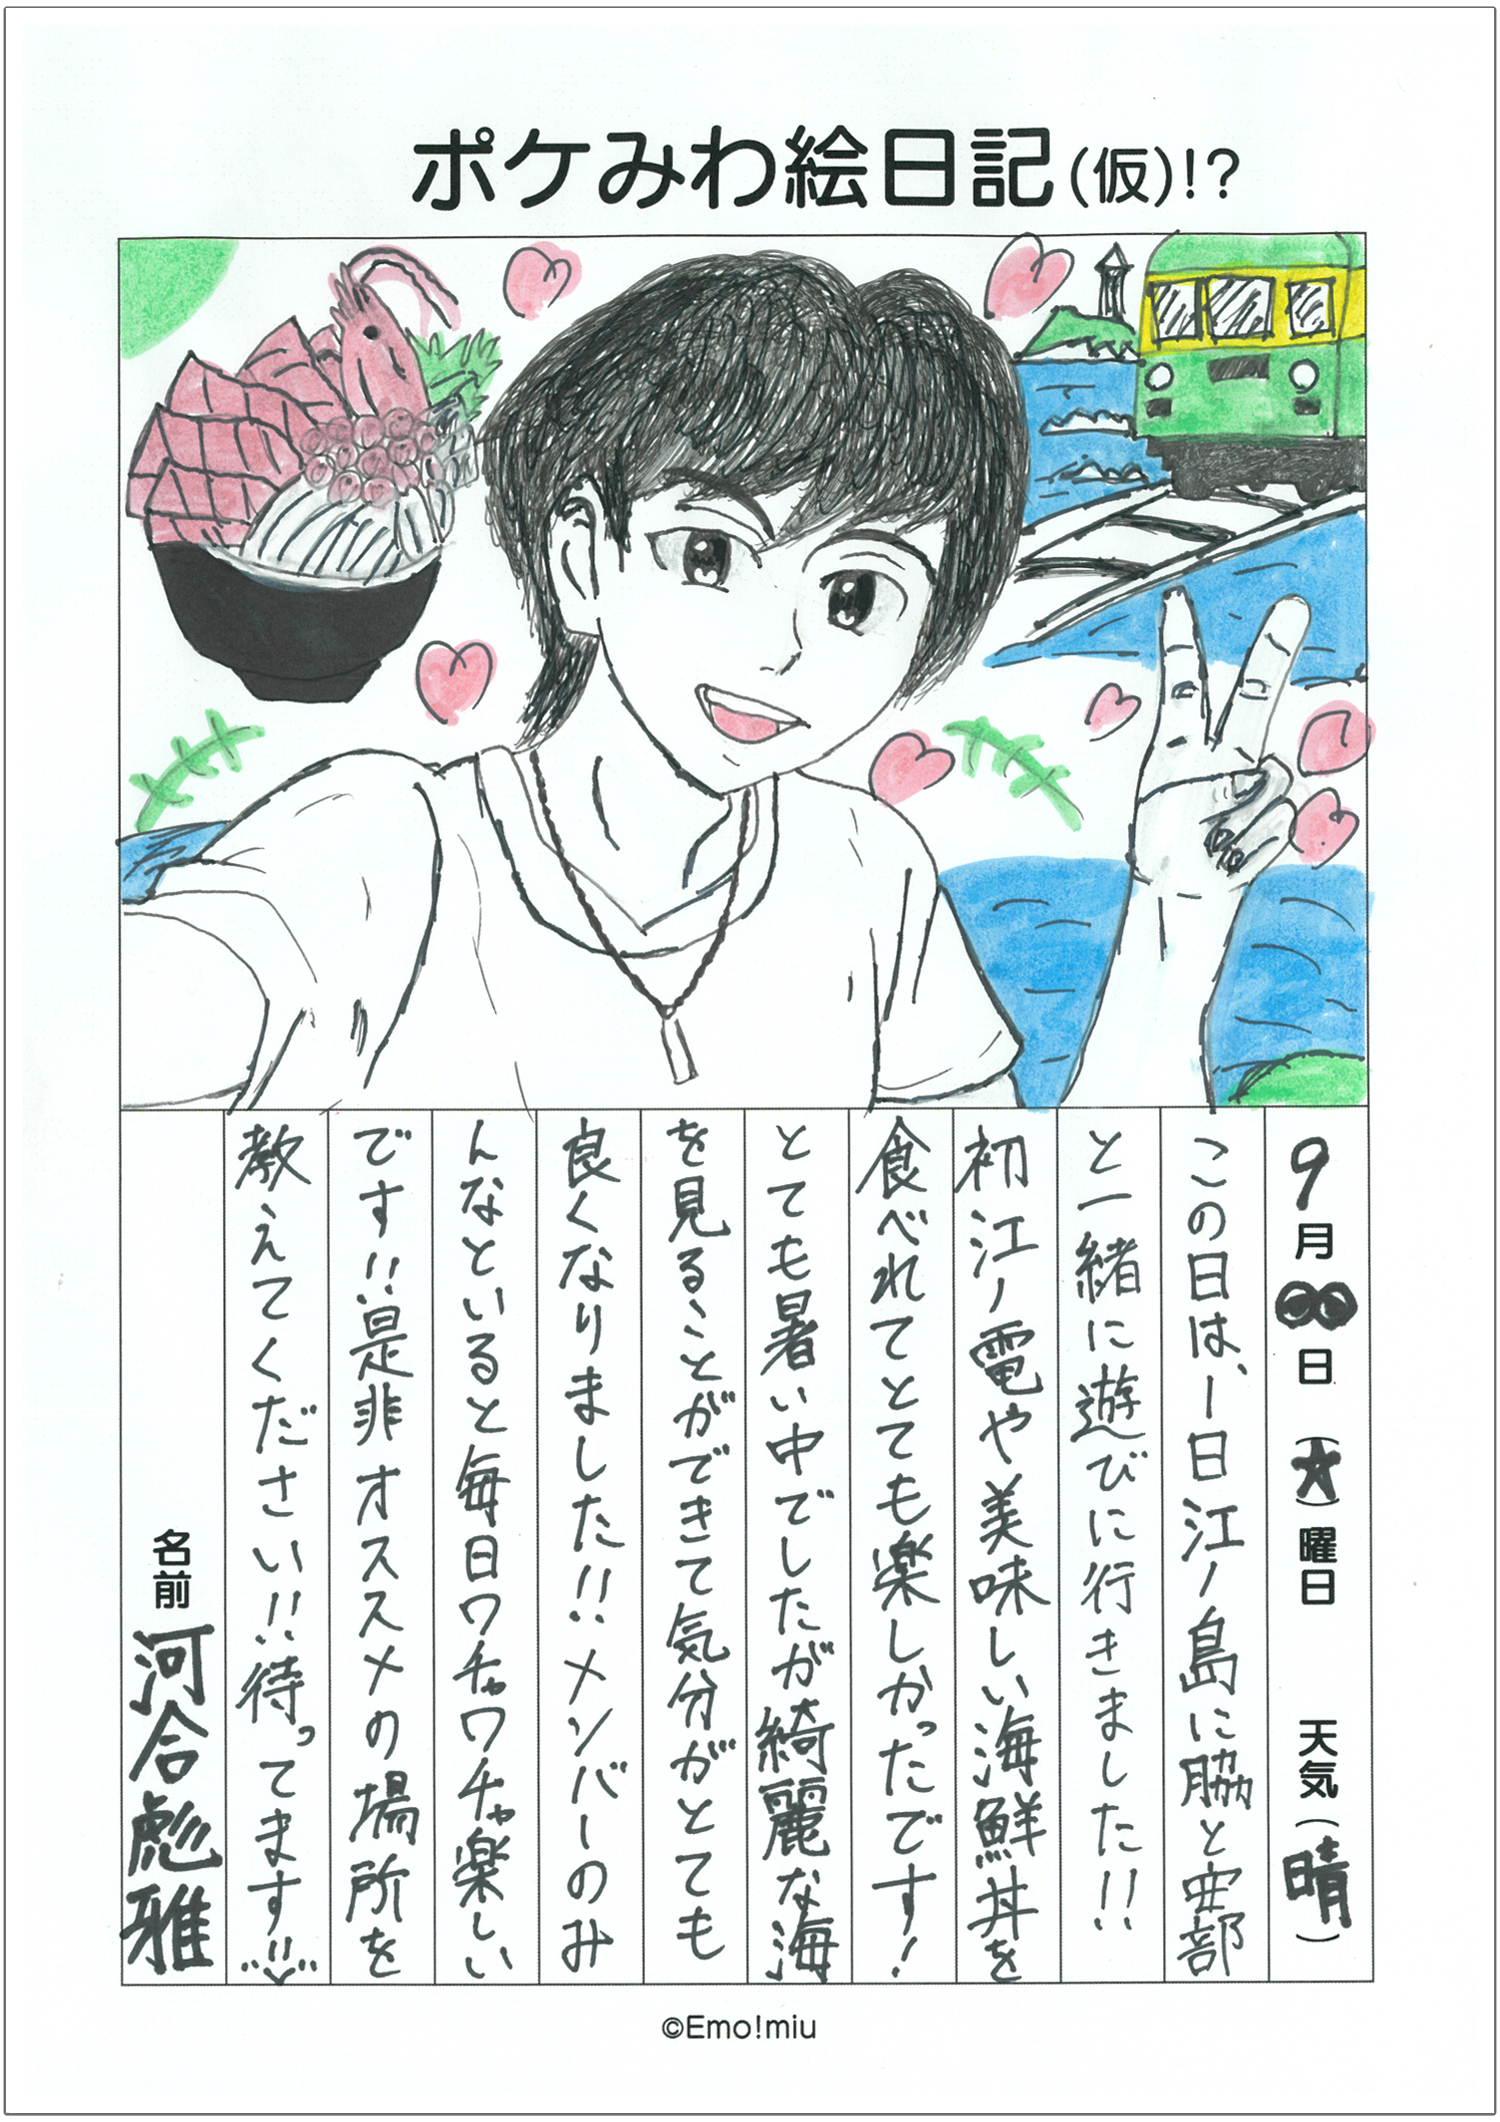 ポケみわ絵日記(仮)!?
9月∞日 (★)曜日 天気(晴)
この日は、1日江ノ島に脇と安部
と一緒に遊びに行きました!!
初江ノ電や美味しい海鮮丼を
食べれてとても楽しかったです!
とても暑い中でしたが綺麗な海
を見ることができて気分がとても
良くなりました!!メンバーのみ
んなといると毎日ワチャワチャ楽しい
です!!是非オススメの場所を
教えてください!!待ってます!!
名前 河合彪雅
©Emo!miu